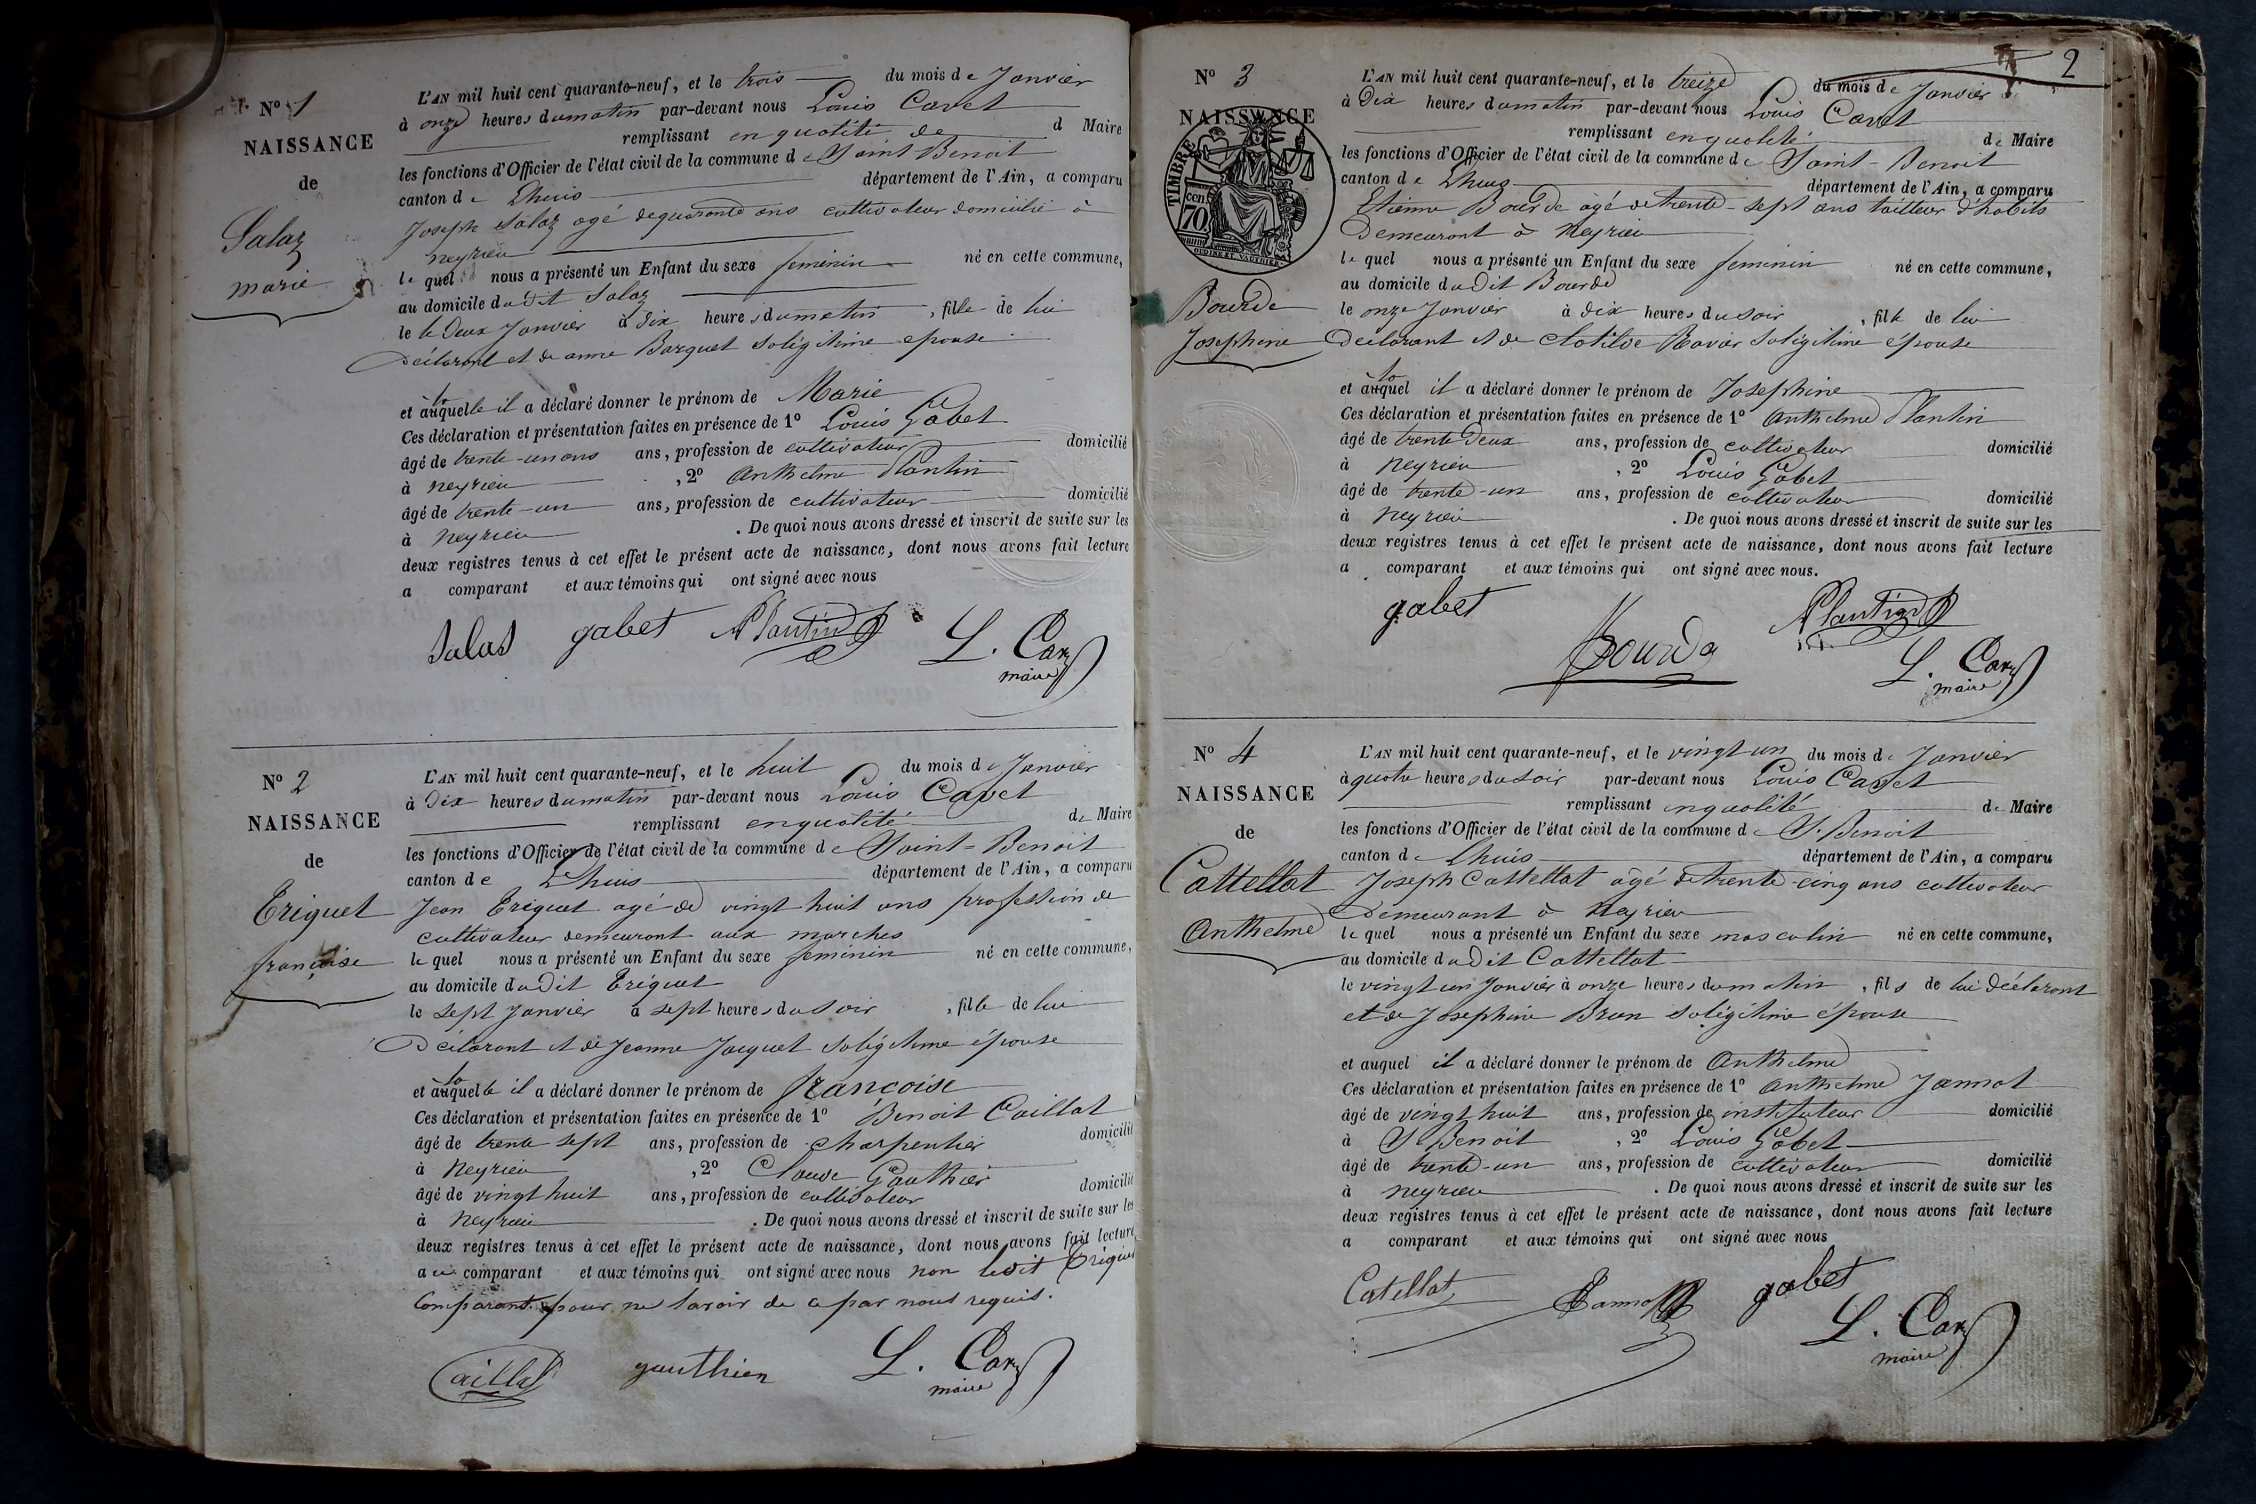 N° 1
NAISSANCE
de
Salaz
marie
L'AN mil huit cent quarante-neuf, et le trois du mois de Janvier
à onze heures du matin par-devant nous Louis Cavet
remplissant en qualité de d Maire
les fonctions d'Officier de l'état civil de la commune de Saint Benoit
canton de Lhuis département de l'Ain, a comparu
Joseph Salaz agé de quarante ans cultivateur domicilié à
neyrieu
le quel nous a présenté un Enfant du sexe feminin né en cette commune,
au domicile dudit Salaz
le le Deux Janvier à dix heures du matin, fille de lui
Déclarant et de anne Barquet sa légitime epouse
et auquelle la il a déclaré donner le prénom de Marie
Ces déclaration et présentation faites en présence de 1° Louis Gabet
âgé de trente-un ans ans, profession de cultivateur domicilié
à neyrieu, 2° Anthelme Plantin
âgé de trente-un ans, profession de cultivateur domicilié
à neyrieu. De quoi nous avons dressé et inscrit de suite sur les
deux registres tenus à cet effet le présent acte de naissance, dont nous avons fait lecture
a comparant et aux témoins qui ont signé avec nous
Salas gabet Plantin L. Cavet
maire
N° 2
NAISSANCE
de
Triquet
françoise
L'AN mil huit cent quarante-neuf, et le huit du mois de Janvier
à Dix heures du matin par-devant nous Louis Cavet
remplissant en qualité de Maire
les fonctions d'Officier de l'état civil de la commune de Saint-Benoit
canton de Lhuis département de l'Ain, a comparu
Jean Triquet agé de vingt huit ans profession de
cultivateur demeurant aux marches
le quel nous a présenté un Enfant du sexe feminin né en cette commune,
au domicile du Dit Triquet
le sept Janvier à sept heures du soir, fille de lui
Déclarant et de Jeanne Jacquet sa légitime épouse
et auquelle la il a déclaré donner le prénom de françoise
Ces déclaration et présentation faites en présence de 1° Benoit Caillat
âgé de trente sept ans, profession de charpentier domicilié
à Neyrieu, 2° Claude Gauthier
âgé de vingt huit ans, profession de cultivateur domicilié
à Neyrieu. De quoi nous avons dressé et inscrit de suite sur les
deux registres tenus à cet effet le présent acte de naissance, dont nous avons fait lecture
au comparant et aux témoins qui ont signé avec nous non ledit Triquet
Comparant pour ne savoir de ce par nous requis.
Caillat gauthier L. Cavet
maire
2
N° 3
NAISSANCE
TIMBRE
70 cen
Bourde
Josephine
L'AN mil huit cent quarante-neuf, et le treize du mois de Janvier
à Dix heures du matin par-devant nous Louis Cavet
remplissant en qualité de Maire
les fonctions d'Officier de l'état civil de la commune de Saint-Benoit
canton de Lhuis département de l'Ain, a comparu
Etienne Bourde agé de trente sept ans tailleur d'habits
Demeurant à Neyrieu
le quel nous a présenté un Enfant du sexe feminin né en cette commune,
au domicile du Dit Bourde
le onze Janvier à dix heures du soir, fille de lui
Déclarant et de Clotilde Ravier sa légitime épouse
et auquel la il a déclaré donner le prénom de Josephine
Ces déclaration et présentation faites en présence de 1° Anthelme Plantin
âgé de trente Deux ans, profession de cultivateur domicilié
à Neyrieu, 2° Louis Gabet
âgé de trente-un ans, profession de cultivateur domicilié
à Neyrieu. De quoi nous avons dressé et inscrit de suite sur les
deux registres tenus à cet effet le présent acte de naissance, dont nous avons fait lecture
a comparant et aux témoins qui ont signé avec nous.
gabet Bourde Plantin
L. Cavet
maire
N° 4
NAISSANCE
de
Cattellat
Anthelme
L'AN mil huit cent quarante-neuf, et le vingt un du mois de Janvier
à quatre heures du soir par-devant nous Louis Cavet
remplissant en qualité de Maire
les fonctions d'Officier de l'état civil de la commune de St. Benoit
canton de Lhuis département de l'Ain, a comparu
Joseph Cattellat âgé de trente-cinq ans cultivateur
Demeurant à Neyrieu
le quel nous a présenté un Enfant du sexe masculin né en cette commune,
au domicile du Dit Cattellat
le vingt un Janvier à onze heures du matin, fils de lui déclarant
et de Josephine Brun sa légitime épouse
et auquel il a déclaré donner le prénom de Anthelme
Ces déclaration et présentation faites en présence de 1° Anthelme Jannot
âgé de vingt huit ans, profession de instituteur domicilié
à St Benoit, 2° Louis Gabet
âgé de trente-un ans, profession de cultivateur domicilié
à neyrieu. De quoi nous avons dressé et inscrit de suite sur les
deux registres tenus à cet effet le présent acte de naissance, dont nous avons fait lecture
a comparant et aux témoins qui ont signé avec nous
Catellat Jannot gabet
L. Cavet
maire